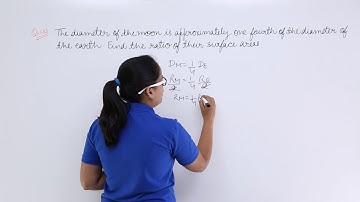 Que: The diameter of the moon is approximately one fourth of the diameter of
the earth. Find the ratio of their surface areas
DM = 1/4 DE
RM/2 = 1/4 RE/2
RM = 1/4 R